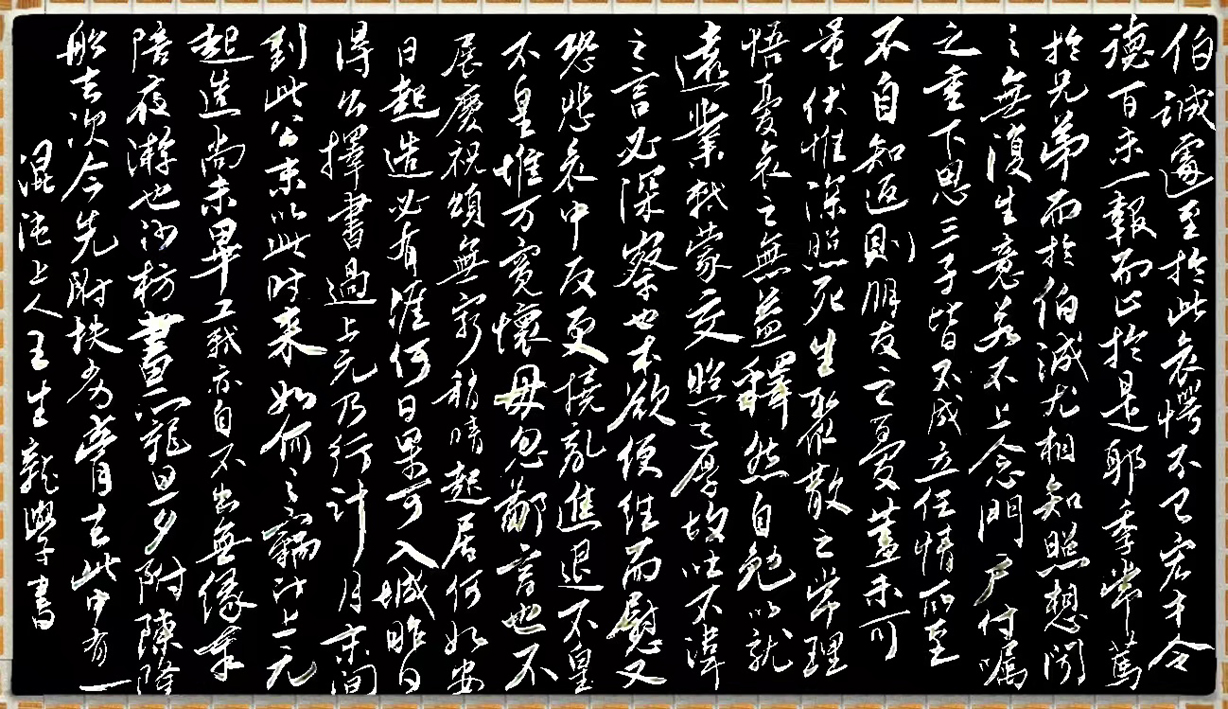 伯誠遽至於此哀愕不已宏才令
德百未一報而止於是耶季常篤
於兄弟而於伯誠尤相知照想聞
之無復生意若不上念門戶付嘱
之重下思三子皆不成立任情所至
不自知返則朋友之憂蓋未可
量伏惟深照死生聚散之常理
悟憂哀之無益釋然自勉以就
遠業軾蒙交照之厚故吐不諱
之言必深察也本欲便往面慰又
恐悲哀中反更撓亂進退不皇
不皇惟万寬懷毋忽鄙言也不
展慶祝頌無窮稍晴起居何如安
日起造必有涯何日果可入城昨日
得公擇書過上元乃行計月末間
到此公亦以此時来如何〻竊計上元
起造尚未畢工軾亦自不出無緣奉
陪夜游也沙枋畫籠旦夕附陳隆
船去次今先附扶劣膏去此中有一
混沌上人王生龍學書